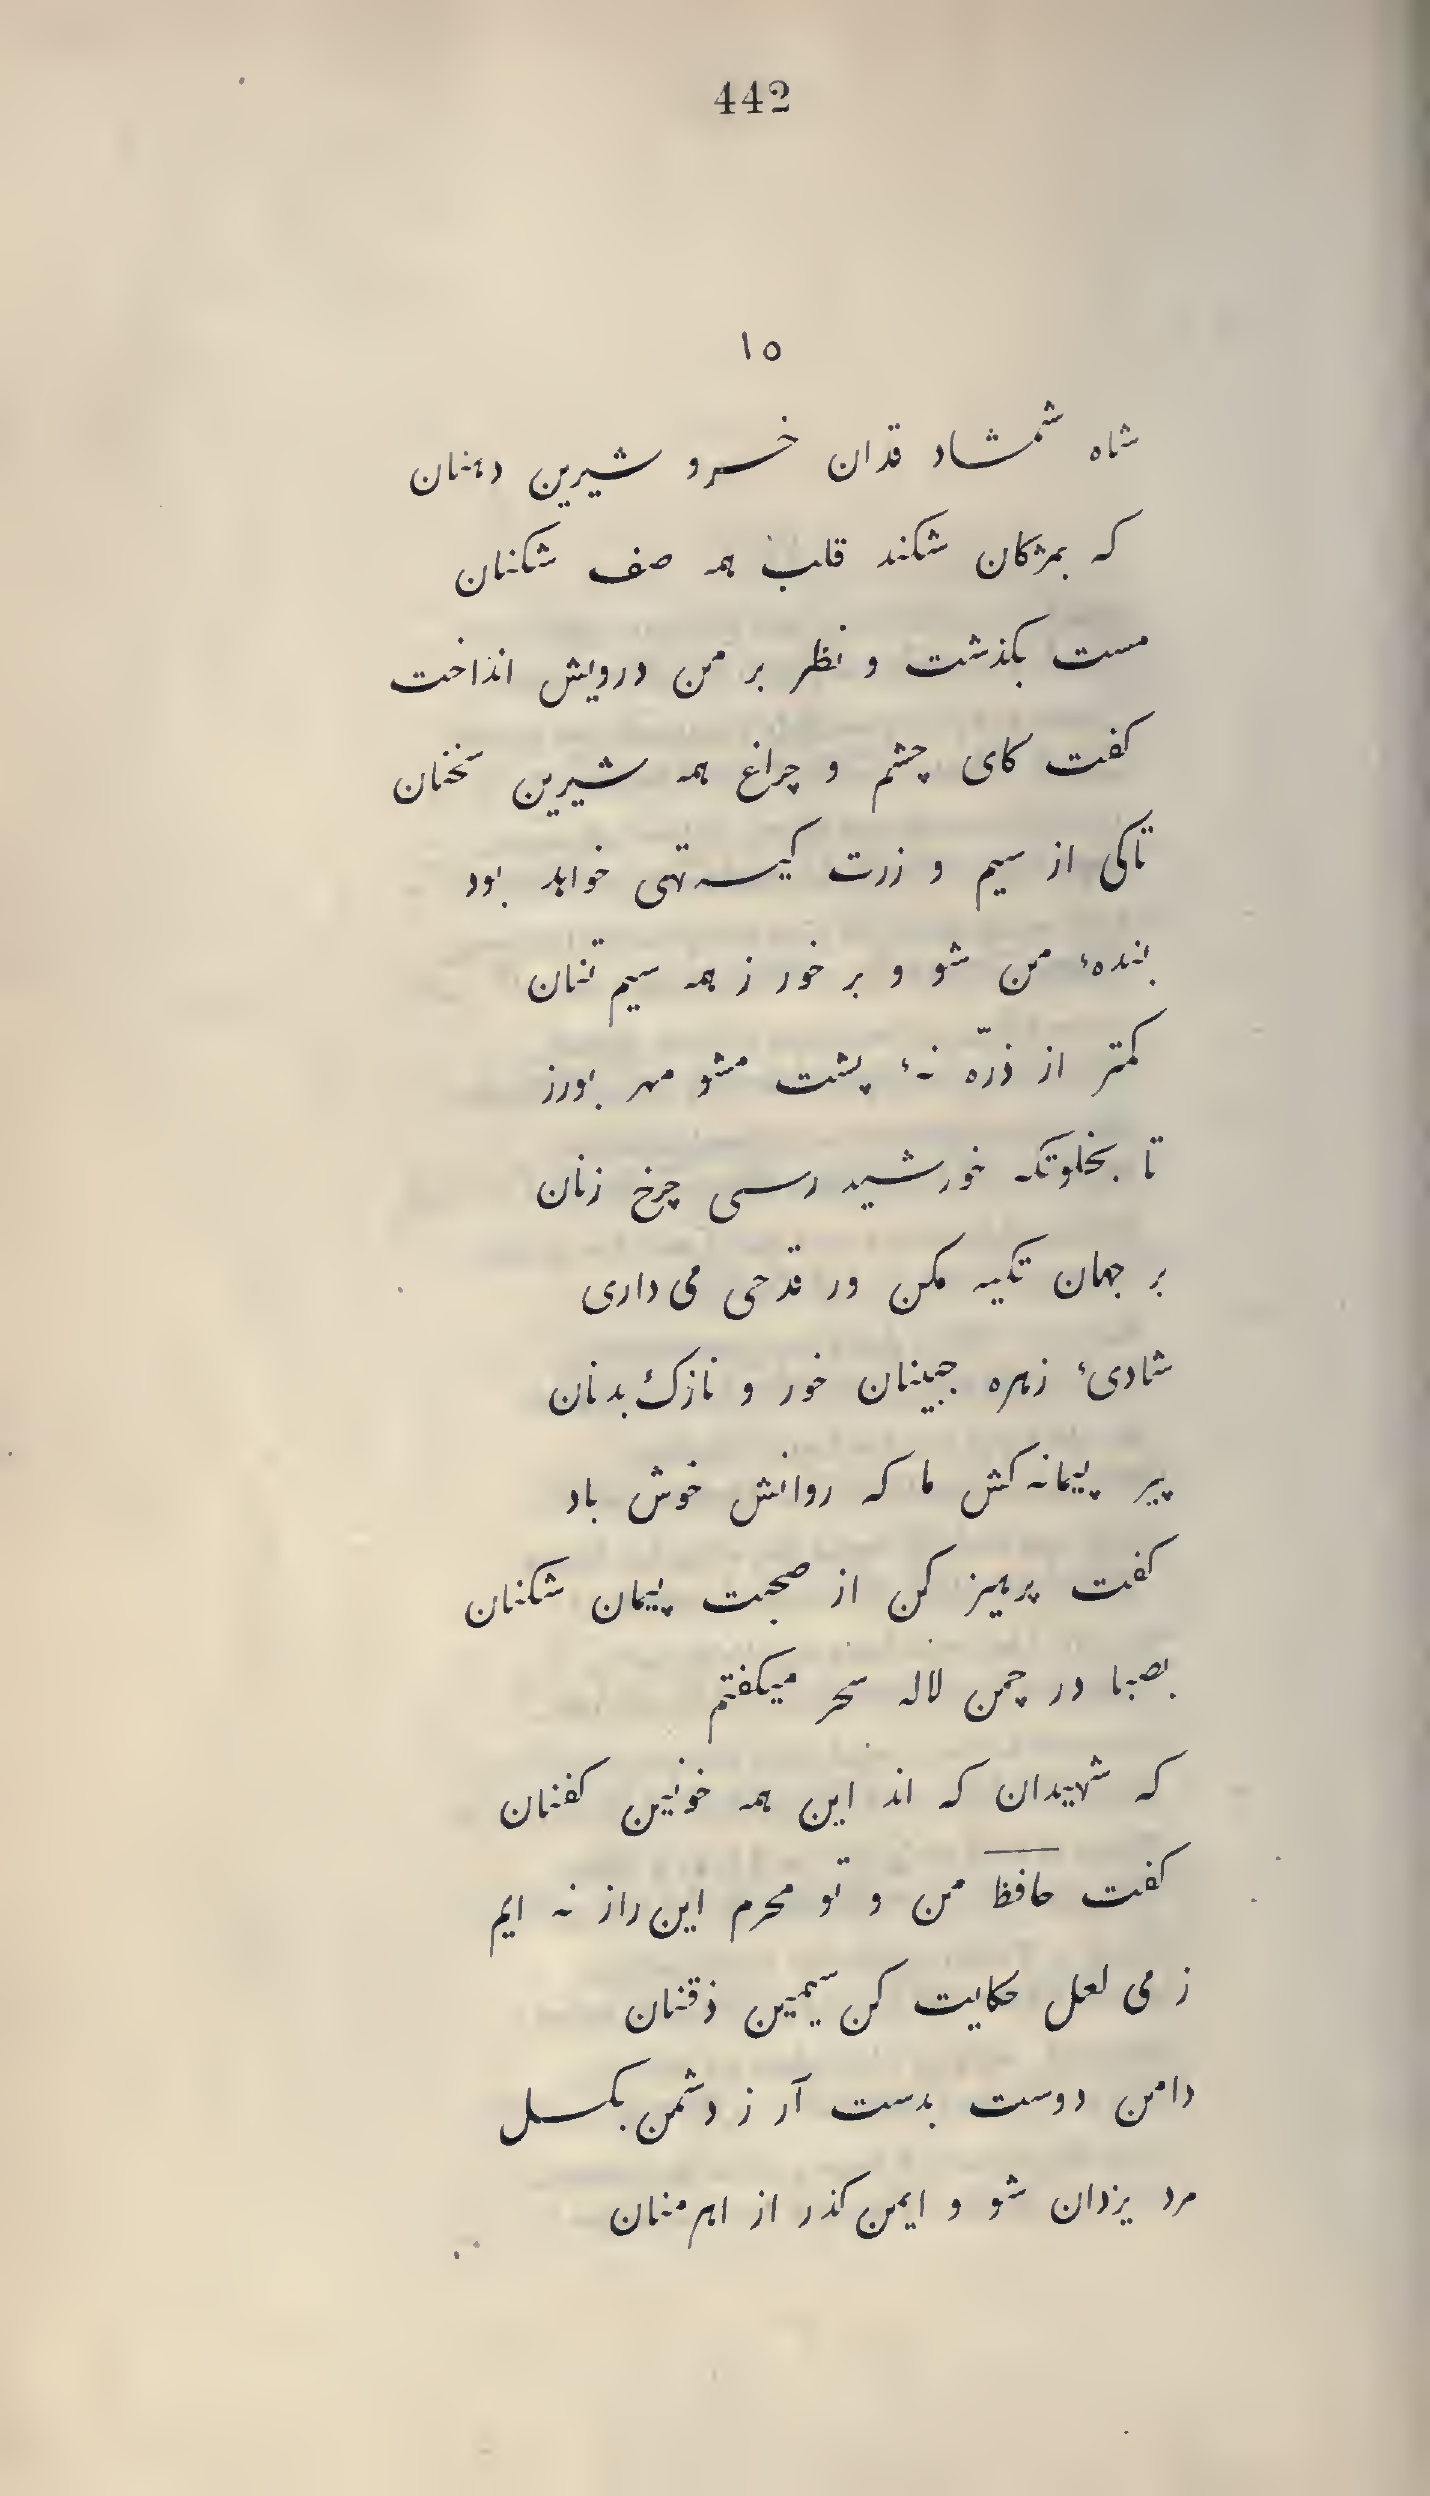 442
١٥
شاه شمشاد قدان خسرو شیرین دهنان
که بمژکان شکند قلب همه صف شکنان
مست بکذشت و نظر بر من درویش انداخت
کفت کای چشم و چراغ همه شیرین سخنان
تاکی از سیم و زرت کیسه تهی خواهد بود
بندهٔ من شو و بر خور ز همه سیم تنان
کمتر از ذرّه نهٔ پشت مشو مهر بورز
تا بخلوتکه خورشید رسی چرخ زنان
بر جهان تکیه مکن ور قدحی می داری
شادیٔ زهره جبینان خور و نازک بدنان
پیر پیمانه کش ما که روانش خوش باد
کفت پرهیز کن از صحبت پیمان شکنان
بصبا در چمن لاله سحر میکفتم
که شهیدان که اند این همه خونین کفنان
کفت حافظ من و تو محرم این راز نه ایم
ز می لعل حکایت کن سیمین ذقنان
دامن دوست بدست آر ز دشمن بکسل
مرد یزدان شو و ایمن کذر از اهرمنان